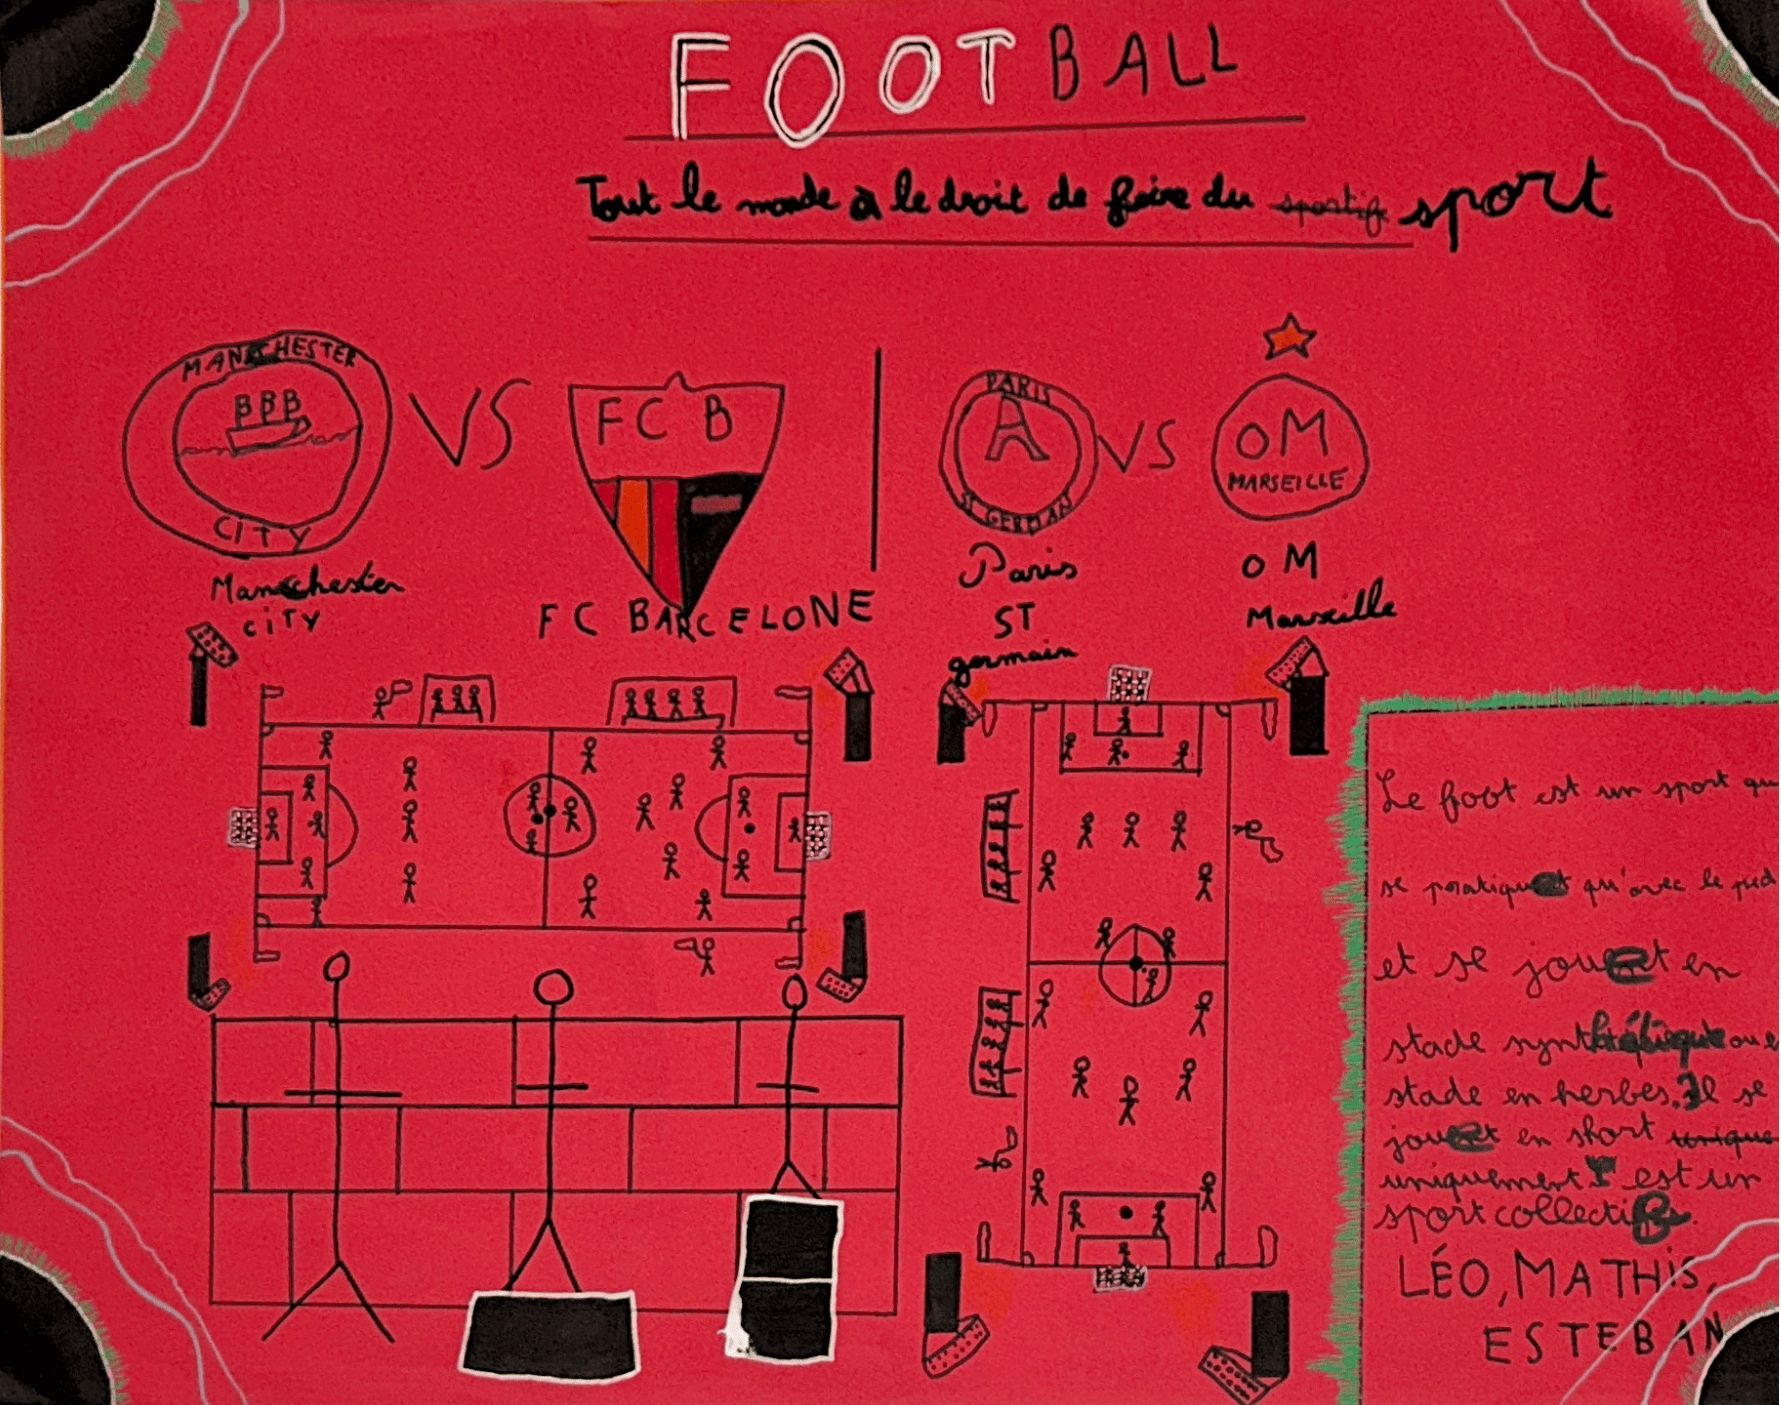 FOOTBALL
Tout le monde à le droit de faire du sportif sport
MANCHESTER
CITY
VS
FC B
PARIS
ST GERMAN
VS
OM
MARSEILLE
Manchester
CITY
FC BARCELONE
Paris
ST
germain
OM
Marseille
Le foot est un sport qu
se pratique qu'avec le pied
et se jouet en
stade synthétique ou e
stade en herbes. Il se
jouet en short unique
uniquement est un
sport collectif.
LÉO, MATHIS,
ESTEBAN